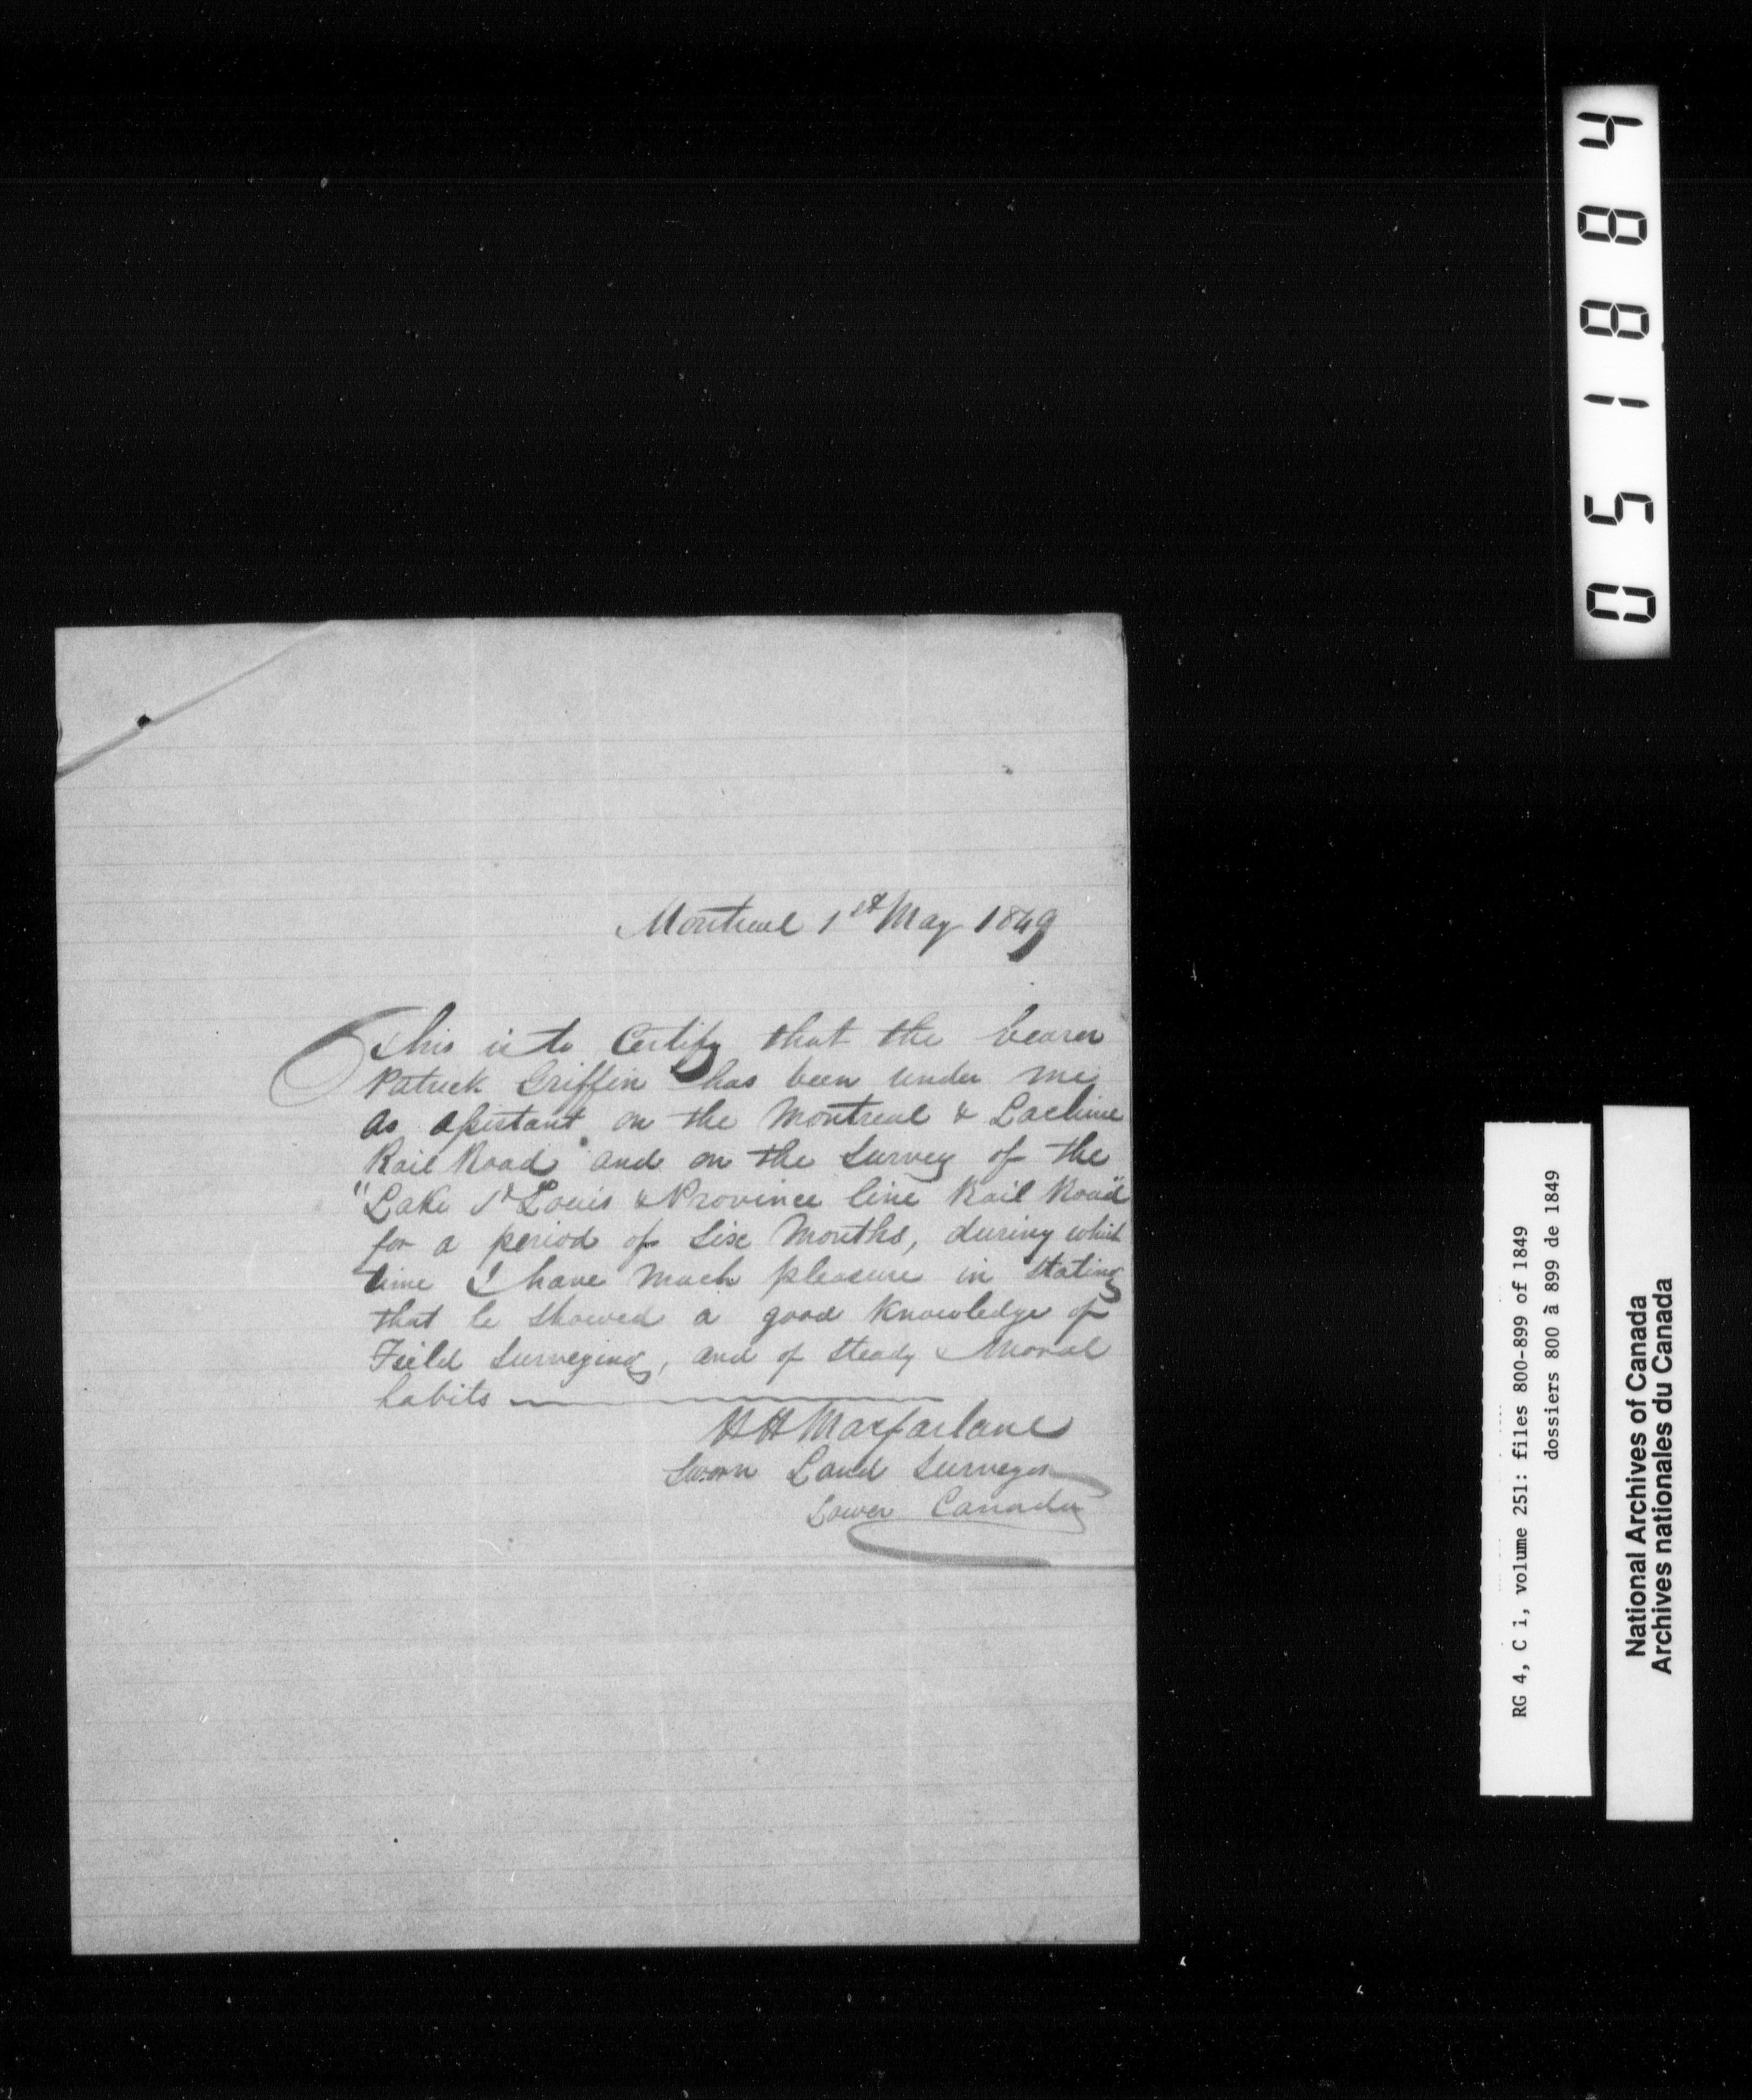 Montreal 1st May 1849
This is to Certify that the bearer
Patrick Griffin has been under me
as assistant on the Montreal & Lachine
Rail Road and on the Survey of the
"Lake St Louis & Province line Rail Road"
for a period of Six Months, during which
time I have much pleasure in Stating
that he showed a good Knowledge of
Field Surveying, and of steady & Moral
habits
Macfarlane
Sworn Land Surveyor
Lower Canada
051884
RG 4, C i, volume 251: files 800-899 of 1849
dossiers 800 à 899 de 1849
National Archives of Canada
Archives nationales du Canada